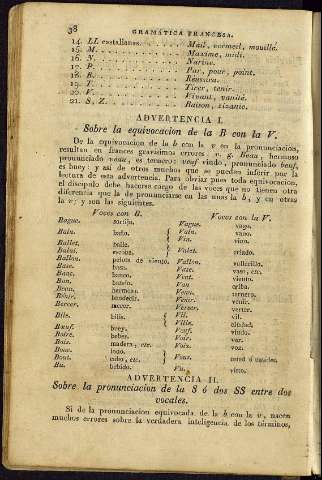 38 GRAMÁTICA FRANCESA.
14. LL castellanas. Mail, vermeil, mouillé.
15. M. Maxime, midi.
16. N. Narine.
17. P. Par, pour, point.
18. R.
19. T. Tirer, tenir.
20. V. Vivant, vanité.
21. S, Z. Raison, zizanie.
ADVERTENCIA I.
Sobre la equivocacion de la B con la V.
De la equivocacion de la b con la v en la pronunciacion,
resultan en frances gravísimos errores v. g. Beau, hermoso
pronunciado veau, es ternero: neuf viudo, pronunciado
es buey: y asi de otros muchos que se pueden inferir por la
lectura de esta advertencia. Para obviar pues toda equivocacion,
el discípulo debe hacerse cargo de las voces que no tienen otra
diferencia que la de pronunciarse en las unas la b, y en otras
la v; y son las siguientes.
Voces con B. Voces con la V.
Bague. sortija. Vague. vago.
Bain. baño. Vain. vano.
Vin. vino.
Ballet. baile. Valet. criado.
Balai.
Ballon. pelota de viento. Vallon. vallecillo.
Base. basa. Vase. vaso, etc.
Banc. banco. Vent. viento.
Ban. bando. Van. criba.
Beau. hermoso. Veau. ternero.
Bénir. bendecir. Venir. venir.
Bercer. mecer. Verser. verter.
Bile. bilis. Vil. vil.
Ville. ciudad.
Bœuf. buey. Veuf. viudo.
Boire. beber. Voir. ver.
Bois. madera, etc. Voix. voz.
Boue. lodo.
Bout. cabo, etc. Vous. usted ó ustedes.
Bu. bebido. Vu. visto.
ADVERTENCIA II.
Sobre la pronunciacion de la S ó dos SS entre dos
vocales.
Si de la pronunciacion equivocada de la b con la v, nacen
muchos errores sobre la verdadera inteligencia de los términos,